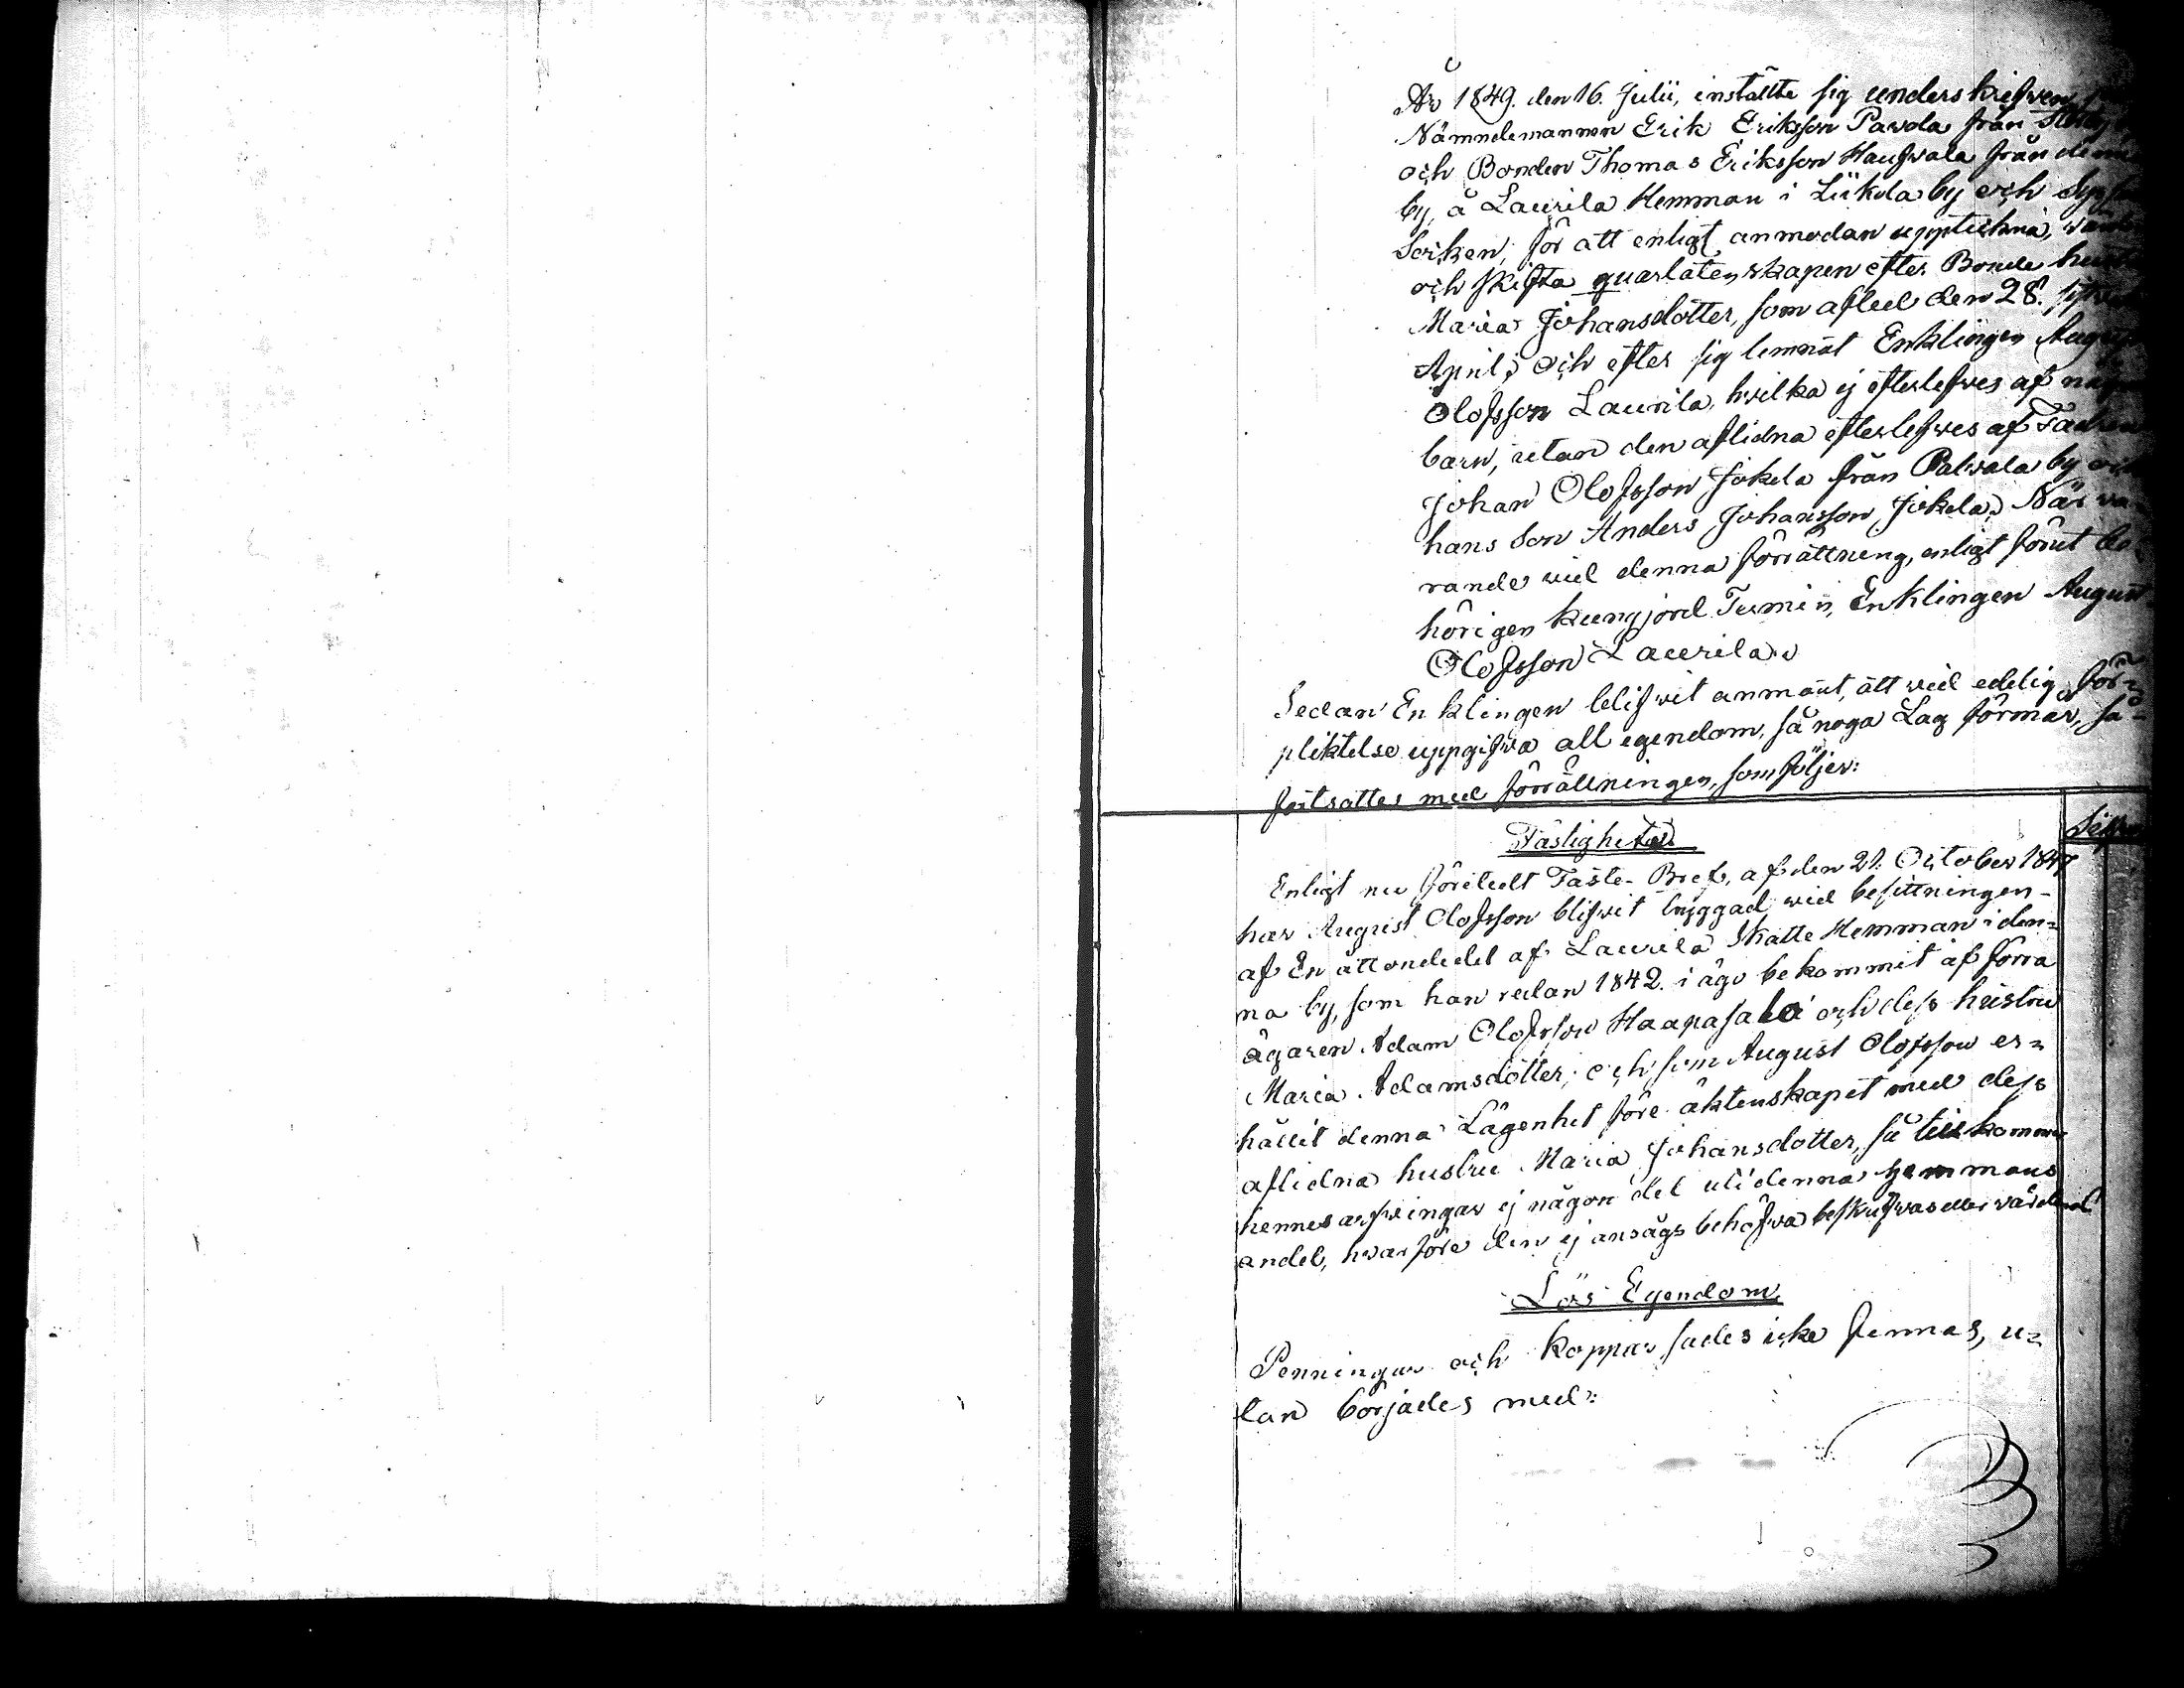 År 1849. den 16. Julii, instälte sig underskrifven
Nämndemannen Erik Eriksson Pavola från
och Bonden Thomas Eriksson Haufvala från denna
by, å Laurila Hemman i Liikola by och
Socken, för att enligt anmodan uppteckna,
och skifta quarlåtenskapen efter Bonde hustru
Maria Johansdotter, som afled den 28. sistled
April; och efter sig lemnat Enklingen August
Olofsson Laurila, hvilka ej efterlefves af några
barn, utan den aflidna efterlefves af Fadren
Johan Olofsson Jokela från Palvala by och
hans Son Anders Johansson Jokela. När va-
rande vid denna förrättning, enligt förut be-
hörigen kungjord Termin, Enklingen August
Olofsson Laurila.
Sedan Enklingen blifvit anmant, att vid edelig för=
pliktelse uppgifva all egendom, så noga Lag förmår, så-
fortsattes med förrättningen, som följer:
Fastighet
Silfver
Enligt nu föreledt Faste-Bref, af den 21. October 1847
har August Olofsson blifvit tryggad vid besittningen-
af En åttondedel af Laurila Skatte Hemman i den=
na by, som han redan 1842. i ägo bekommit af förra
ägaren Adam Olofsson Haapasalo och dess hustru
Maria Adamsdotter; och som August Olofsson er=
hållit denna Lägenhet före äktenskapet med dess
aflidna hustru Maria Johansdotter, så tillkommer
hennes arfvingar ej någon del uti denna hemmans
andel, hvarföre den ej ansågs behöfva beskrifvas eller värderad
Lös Egendom
Penningar och Koppar sades icke finnas, u=
tan börjades med: